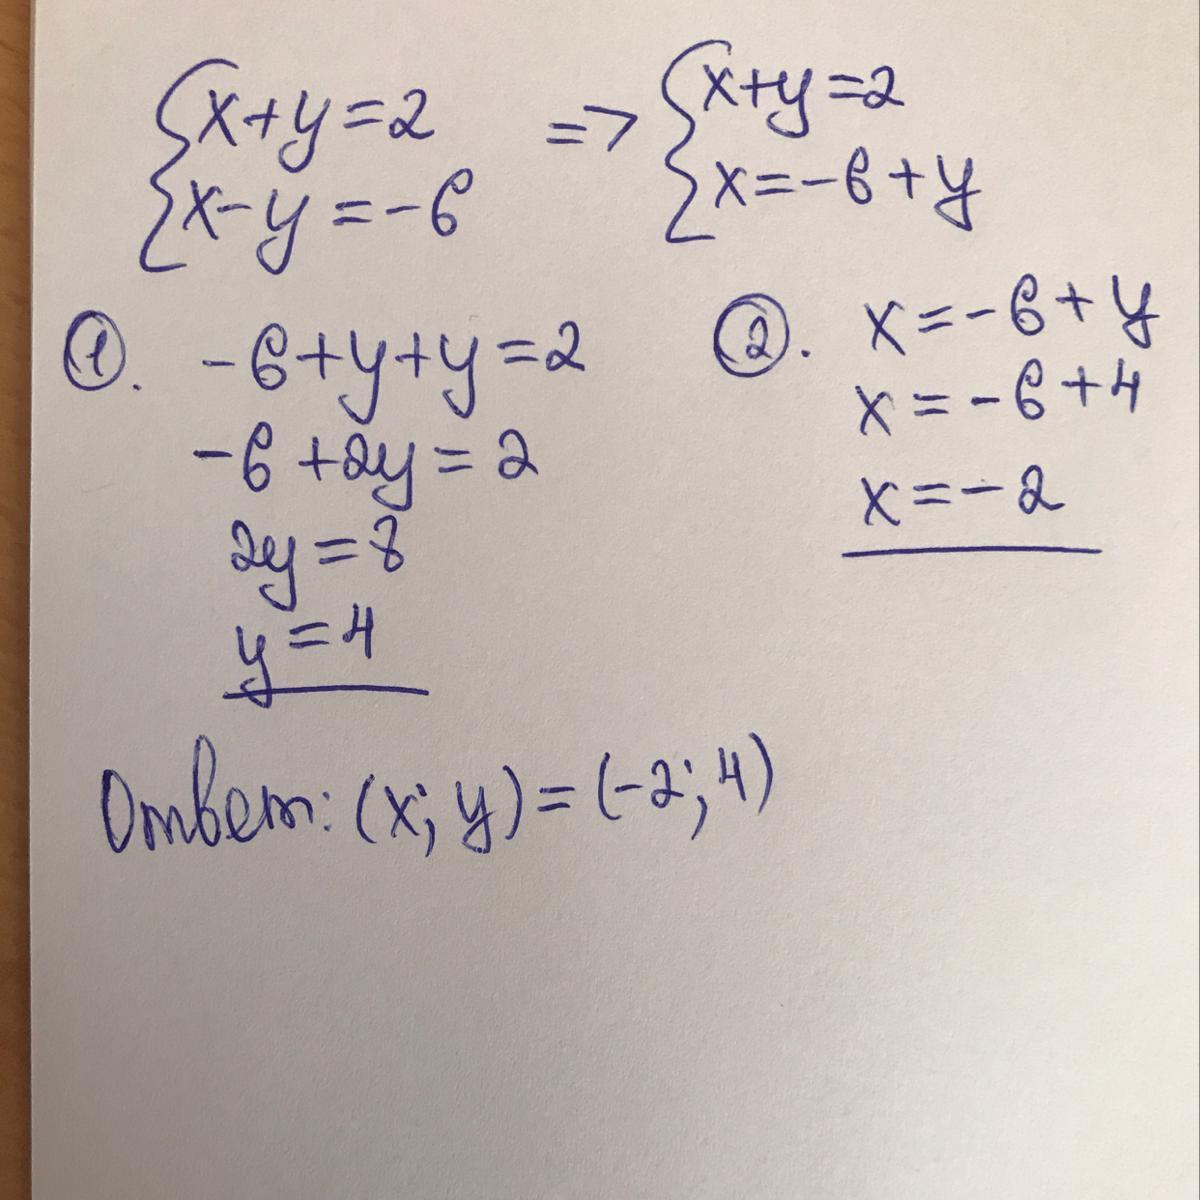 {x+y=2 => {x+y=2
{x-y=-6 {x=-6+y
①. -6+y+y=2
-6+2y=2
2y=8
y=4
②. x=-6+y
x=-6+4
x=-2
Ответ: (x; y)=(-2; 4)